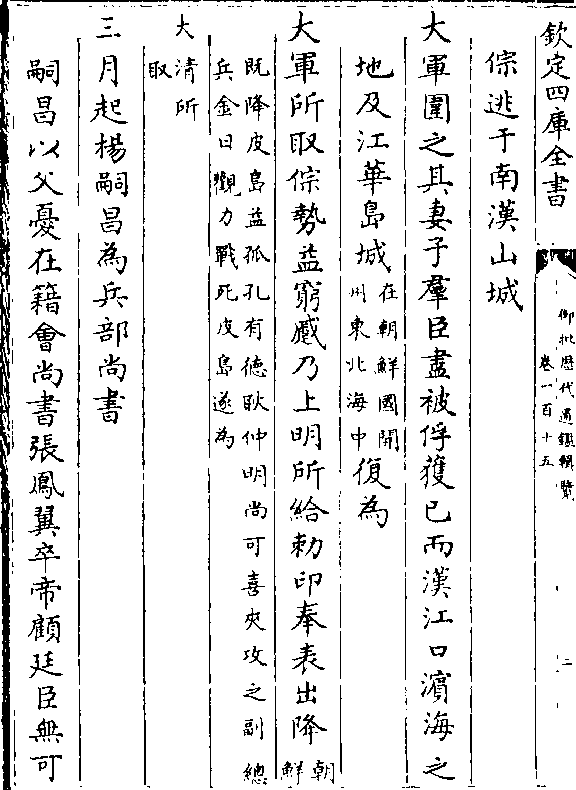 欽定四庫全書
御批歷代通鑑輯覽
卷一百十五
二
倧逃于南漢山城
大軍圍之其妻子羣臣盡被俘獲已而漢江口濱海之
地及江華島城在朝鮮國開州東北海中復為
大軍所取倧勢益窮蹙乃上明所給勅印奉表出降朝鮮
既降皮島益孤孔有德耿仲明尚可喜夾攻之副總
兵金日觀力戰死皮島遂為
大清所
取
三月起楊嗣昌為兵部尚書
嗣昌以父憂在籍會尚書張鳳翼卒帝顧廷臣無可